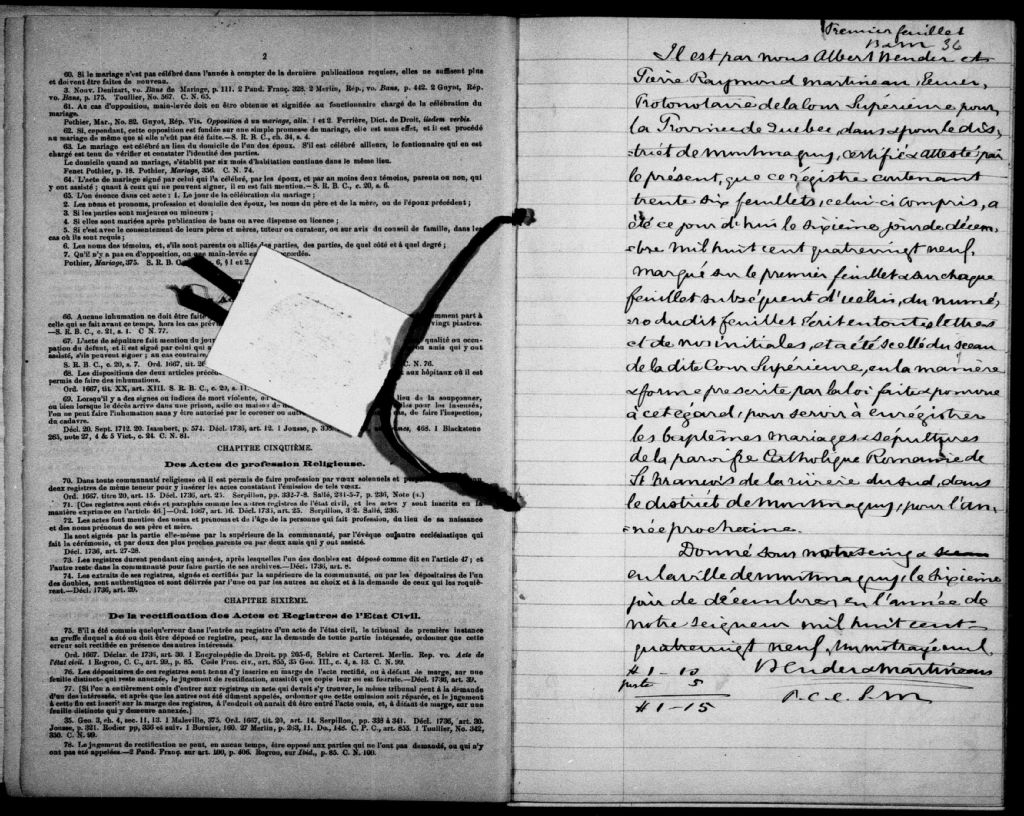 2
60. Si le mariage n'est pas célébré dans l'année à compter de la dernière publications requises, elles ne suffisent plus
et doivent être faites de nouveau.
3. Nouv. Denizart, vo. Bans de Mariage, p. 111. 2 Pand. Franç. 328. 2 Merlin, Rép., vo. Bans, p. 442. 2 Guyot, Rép.
vo. Bans, p. 175. Toullier, No. 567. C. N. 65.
61. Au cas d'opposition, main-levée doit en être obtenue et signifiée au fonctionnaire chargé de la célébration du
mariage.
Pothier, Mar., No. 82. Guyot, Rép. Vis. Opposition à un mariage, alin. 1 et 2. Ferrière, Dict. de Droit, iisdem verbis.
62. Si, cependant, cette opposition est fondée sur une simple promesse de mariage, elle est sans effet, et il est procédé
au mariage de même que si elle n'eût pas été faite.—S. R. B. C., ch. 34, s. 4.
63. Le mariage est célébré au lieu du domicile de l'un des époux. S'il est célébré ailleurs, le fontionnaire qui en est
chargé est tenu de vérifier et constater l'identité des parties.
Le domicile quand au mariage, s'établit par six mois d'habitation continue dans le même lieu.
Fenet Pothier, p. 18. Pothier, Mariage, 356. C. N. 74.
64. L'acte de mariage signé par celui qui l'a célébré, par les époux, et par au moins deux témoins, parents ou non, qui
y ont assisté ; quant à ceux qui ne peuvent signer, il en est fait mention.—S. R. B. C., c. 20, s. 6.
65. L'on énonce dans cet acte : 1. Le jour de la célébration du mariage ;
2. Les noms et pronoms, profession et domicile des époux, les noms du père et de la mère, ou de l'époux précédent ;
3. Si les parties sont majeures ou mineures ;
4. Si elles sont mariées après publication de bans ou avec dispense ou licence ;
5. Si c'est avec le consentement de leurs pères et mères, tuteur ou curateur, ou sur avis du conseil de famille, dans les
cas où ils sont requis ;
6. Les noms des témoins, et, s'ils sont parents ou alliés des parties, des parties, de quel côté et à quel degré ;
7. Qu'il n'y a pas eu d'opposition, ou que main-levée en accordée.
Pothier, Mariage, 375. S. R. B. C. 6, § 1 et 2,
66. Aucune inhumation ne doit être faite mment part à
celle qui se fait avant ce temps, hors les cas prévu vingt piastres.
—S. R. B. C., c. 21, s. 1. C N. 77.
67. L'acte de sépulture fait mention du jour qualité ou occu-
pation du défunt, et il est signé par celui qui a ou amis qui y ont
assisté, s'ils peuvent signer ; au cas contraire,
S. R. B. C., c. 20, s. 7. Ord. 1667, tit. 20 C. N. 76.
68. Les dispositions des deux articles précéd aux hôpitaux où il est
permis de faire des inhumations.
Ord. 1667, tit. XX, art. XIII. S. R. B. C., c. 20, s. 11.
69. Lorsqu'il y a des signes ou indices de mort violente, o lieu de la soupçonner,
ou bien lorsque le décès arrive dans une prison, asile ou maison de pour les insensés,
l'on ne peut faire l'inhumation sans y être autorisé par le coroner ou autre de faire l'inspection,
du cadavre.
Décl. 20. Sept. 1712. 20. Isambert, p. 574. Décl. 1736, art. 12. 1 Jousse, p. 468. 1 Blackstone
265, note 27, 4 & 5 Vict., c. 24. C N. 81.
CHAPITRE CINQUIÈME.
Des Actes de profession Religieuse.
70. Dans toute communauté religieuse où il est permis de faire profession par vœux solennels et
deux registres de même teneur pour y insérer les actes constatant l'émission de tels vœux.
Ord. 1667. titre 20, art. 15. Décl. 1736, art. 25. Serpillon, pp. 332-7-8. Sallé, 231-5-7, p. 236, Note (a.)
71. [Ces registres sont côtés et paraphés comme les autres registres de l'état civil, et les actes y sont inscrits en la
manière exprimée en l'article 46.]—Ord. 1667, art. 16. Décl. 1736, art. 25. Serpillon, 3·2. Sallé, 236.
72. Les actes font mention des noms et prénoms et de l'âge de la personne qui fait profession, du lieu de sa naissance
et des noms prénoms de ses père et mère.
Ils sont signés par la partie elle-même par la supérieure de la communauté, par l'évêque ou autre ecclésiastique qui
fait la cérémonie, et par deux des plus proches parents ou par deux amis qui y ont assisté.
Décl. 1736, art. 27-28.
73. Les registres durent pendant cinq années, après lesquelles l'un des doubles est déposé comme dit en l'article 47 ; et
l'autre reste dans la communauté pour faire partie de ses archives.—Décl. 1736, art. 8.
74. Les extraits de ses registres, signés et certifiés par la supérieure de la communauté, ou par les dépositaires de l'un
des doubles, sont authentiques et sont délivrés par l'une ou par les autres au choix et à la demande de ceux qui les requiè-
rent.—Décl. 1736, art. 29.
CHAPITRE SIXIÈME.
De la rectification des Actes et Registres de l'Etat Civil.
75. S'il a été commis quelqu'erreur dans l'entrée au registre d'un acte de l'état civil, le tribunal de première instance
au greffe duquel a été ou doit être déposé ce registre, peut, sur la demande de toute partie intéressée, ordonner que cette
erreur soit rectifiée en présence des autres intéressés.
Ord. 1667. Déclar. de 1736, art. 30. 1 Encyclopédie de Droit. pp 265-6, Sebire et Carteret. Merlin. Rep. vo. Acte de
l'état civil. 1 Rogron, C. C., art. 99., p. 85. Code Proc. civ., art. 855, 35 Geo. III., c. 4, s. 13. C. N. 99.
76. Les dépositaires de ces registres sont tenus d'y inscrire en marge de l'acte rectifié, ou à défaut de marge, sur une
feuille distincte qui reste annexée, le jugement de rectification, aussitôt que copie leur en est fournie.—Décl. 1736, art. 30.
77. [Si l'on a entièrement omis d'entrer aux registres un acte qui devait s'y trouver, le même tribunal peut à la demande
d'un des intéressés, et après que les autres ont été dûment appelés, ordonner que cette omission soit réparée, et le jugement
à cette fin est inscrit sur la marge des registres, à l'endroit où aurait dû être entré l'acte omis, et, à défaut de marge, sur une
feuille distincte qui y demeure annexée.]
35. Geo. 3, ch. 4, sec. 11, 13. 1 Maleville, 375. Ord. 1667, tit. 20, art. 14. Serpillon, pp. 338 à 341. Décl. 1736, art. 30.
Jousse, p. 321. Rodier pp, 336 et suiv. 1 Bornier, 160. 27 Merlin, p. 263, 11. Do., 148. C. P. C., art. 855. 1 Toullier, No. 342,
350. C. N. 99.
78. Le jugement de rectification ne peut, en aucun temps, être opposé aux parties qui ne l'ont pas demandé, ou qui n'y
ont pas été appelées.—2 Pand. Franç. sur art. 100, p. 406. Rogron, sur Ibid., p. 85. C. N. 100.
Premier feuillet
B & M 36
Il est par nous Albert Bender et
Pierre Raymond Martineau, Ecuier,
Protonotaire de la Cour Supérieure, pour
la Province de Quebec, dans & pour le dis-
-trict de Montmagny, certifié & attesté, par
le présent, que ce régistre contenant
trente six feuillets, celui-ci compris, a
été ce jourd'hui le sixième jour de décem-
-bre mil huit cent quatrevingt neuf.
Marqué sur le premier feuillet & sur chaque
feuillet subséquent d'icelui, du numé-
-ro du dit feuillet écrit en toutes lettres
et de nos initiales, et a été scellé du sceau
de la dite Cour Supérieure, en la manière
& forme prescrite par la loi faite & pourvue
à cet égard, pour servir à enrégistrer
les baptêmes mariages & sépultures
de la paroisse Catholique Romaine de
St. Francois de la rivière du sud, dans
le district de Montmagny, pour l'an-
-née prochaine.
Donné sous notre seing &
en la ville de Montmagny, le sixième
jour de décembre, en l'année de
notre seigneur mil huit cent-
quatrevingt neuf, un mot rayé nul.
# 1 - 10 Bender & Martineau
poste 5
# 1 - 15 P. C. S. M